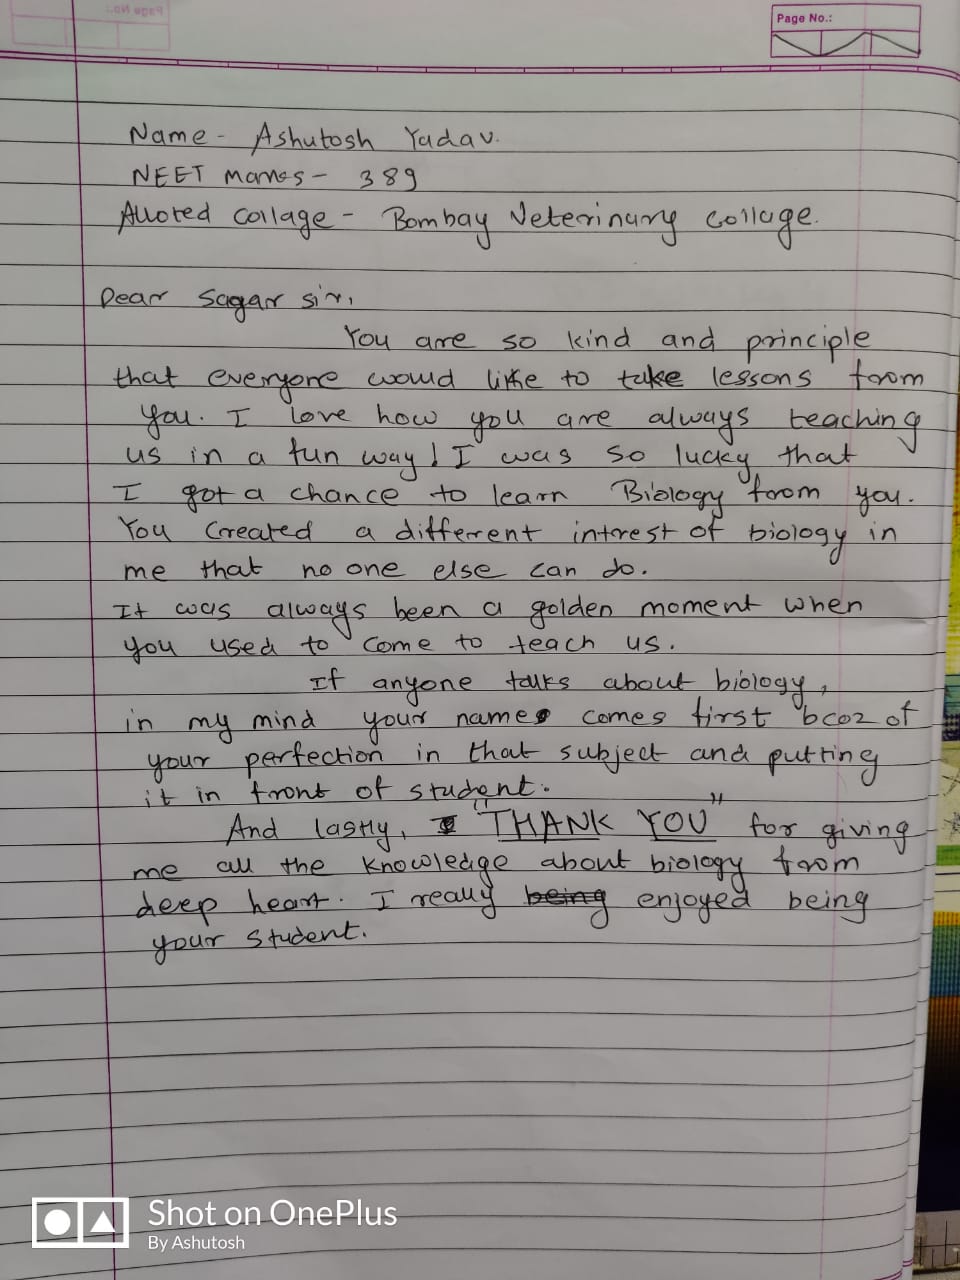 Page No.:
Name - Ashutosh Yadav.
NEET Marks - 389
Alloted collage - Bombay Veterinary collage.
Dear Sagar sir,
You are so kind and principle
that everyone would like to take lessons from
you. I love how you are always teaching
us in a fun way! I was so lucky that
I got a chance to learn Biology from you.
You created a different intrest of biology in
me that no one else can do.
It was always been a golden moment when
you used to come to teach us.
If anyone talks about biology,
in my mind your name comes first bcoz of
your perfection in that subject and putting
it in front of student.
And lastly, "THANK YOU" for giving
me all the knowledge about biology from
deep heart. I really being enjoyed being
your student.
Shot on OnePlus
By Ashutosh